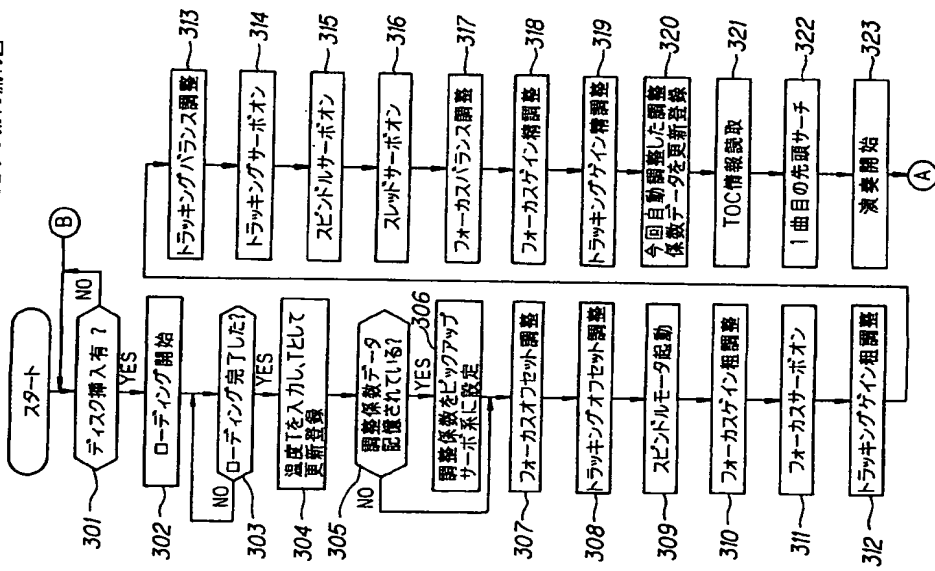 スタート
B
ディスク挿入有?
NO
YES
301
ローディング開始
302
ローディング完了した?
NO
YES
303
温度Tを入力し、Tとして
更新登録
304
調整係数データ
記憶されている?
NO
YES
305
306
調整係数をピックアップ
サーボ系に設定
フォーカスオフセット調整
307
トラッキングオフセット調整
308
スピンドルモータ起動
309
フォーカスゲイン粗調整
310
フォーカスサーボオン
311
トラッキングゲイン粗調整
312
トラッキングバランス調整
313
トラッキングサーボオン
314
スピンドルサーボオン
315
スレッドサーボオン
316
フォーカスバランス調整
317
フォーカスゲイン精調整
318
トラッキングゲイン精調整
319
今回自動調整した調整
係数データを更新登録
320
TOC情報読取
321
1曲目の先頭サーチ
322
演奏開始
323
A